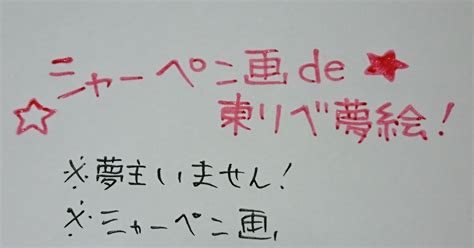 ニャーペン画de★
☆東リべ夢絵!
※夢主いません!
※ミャーペン画